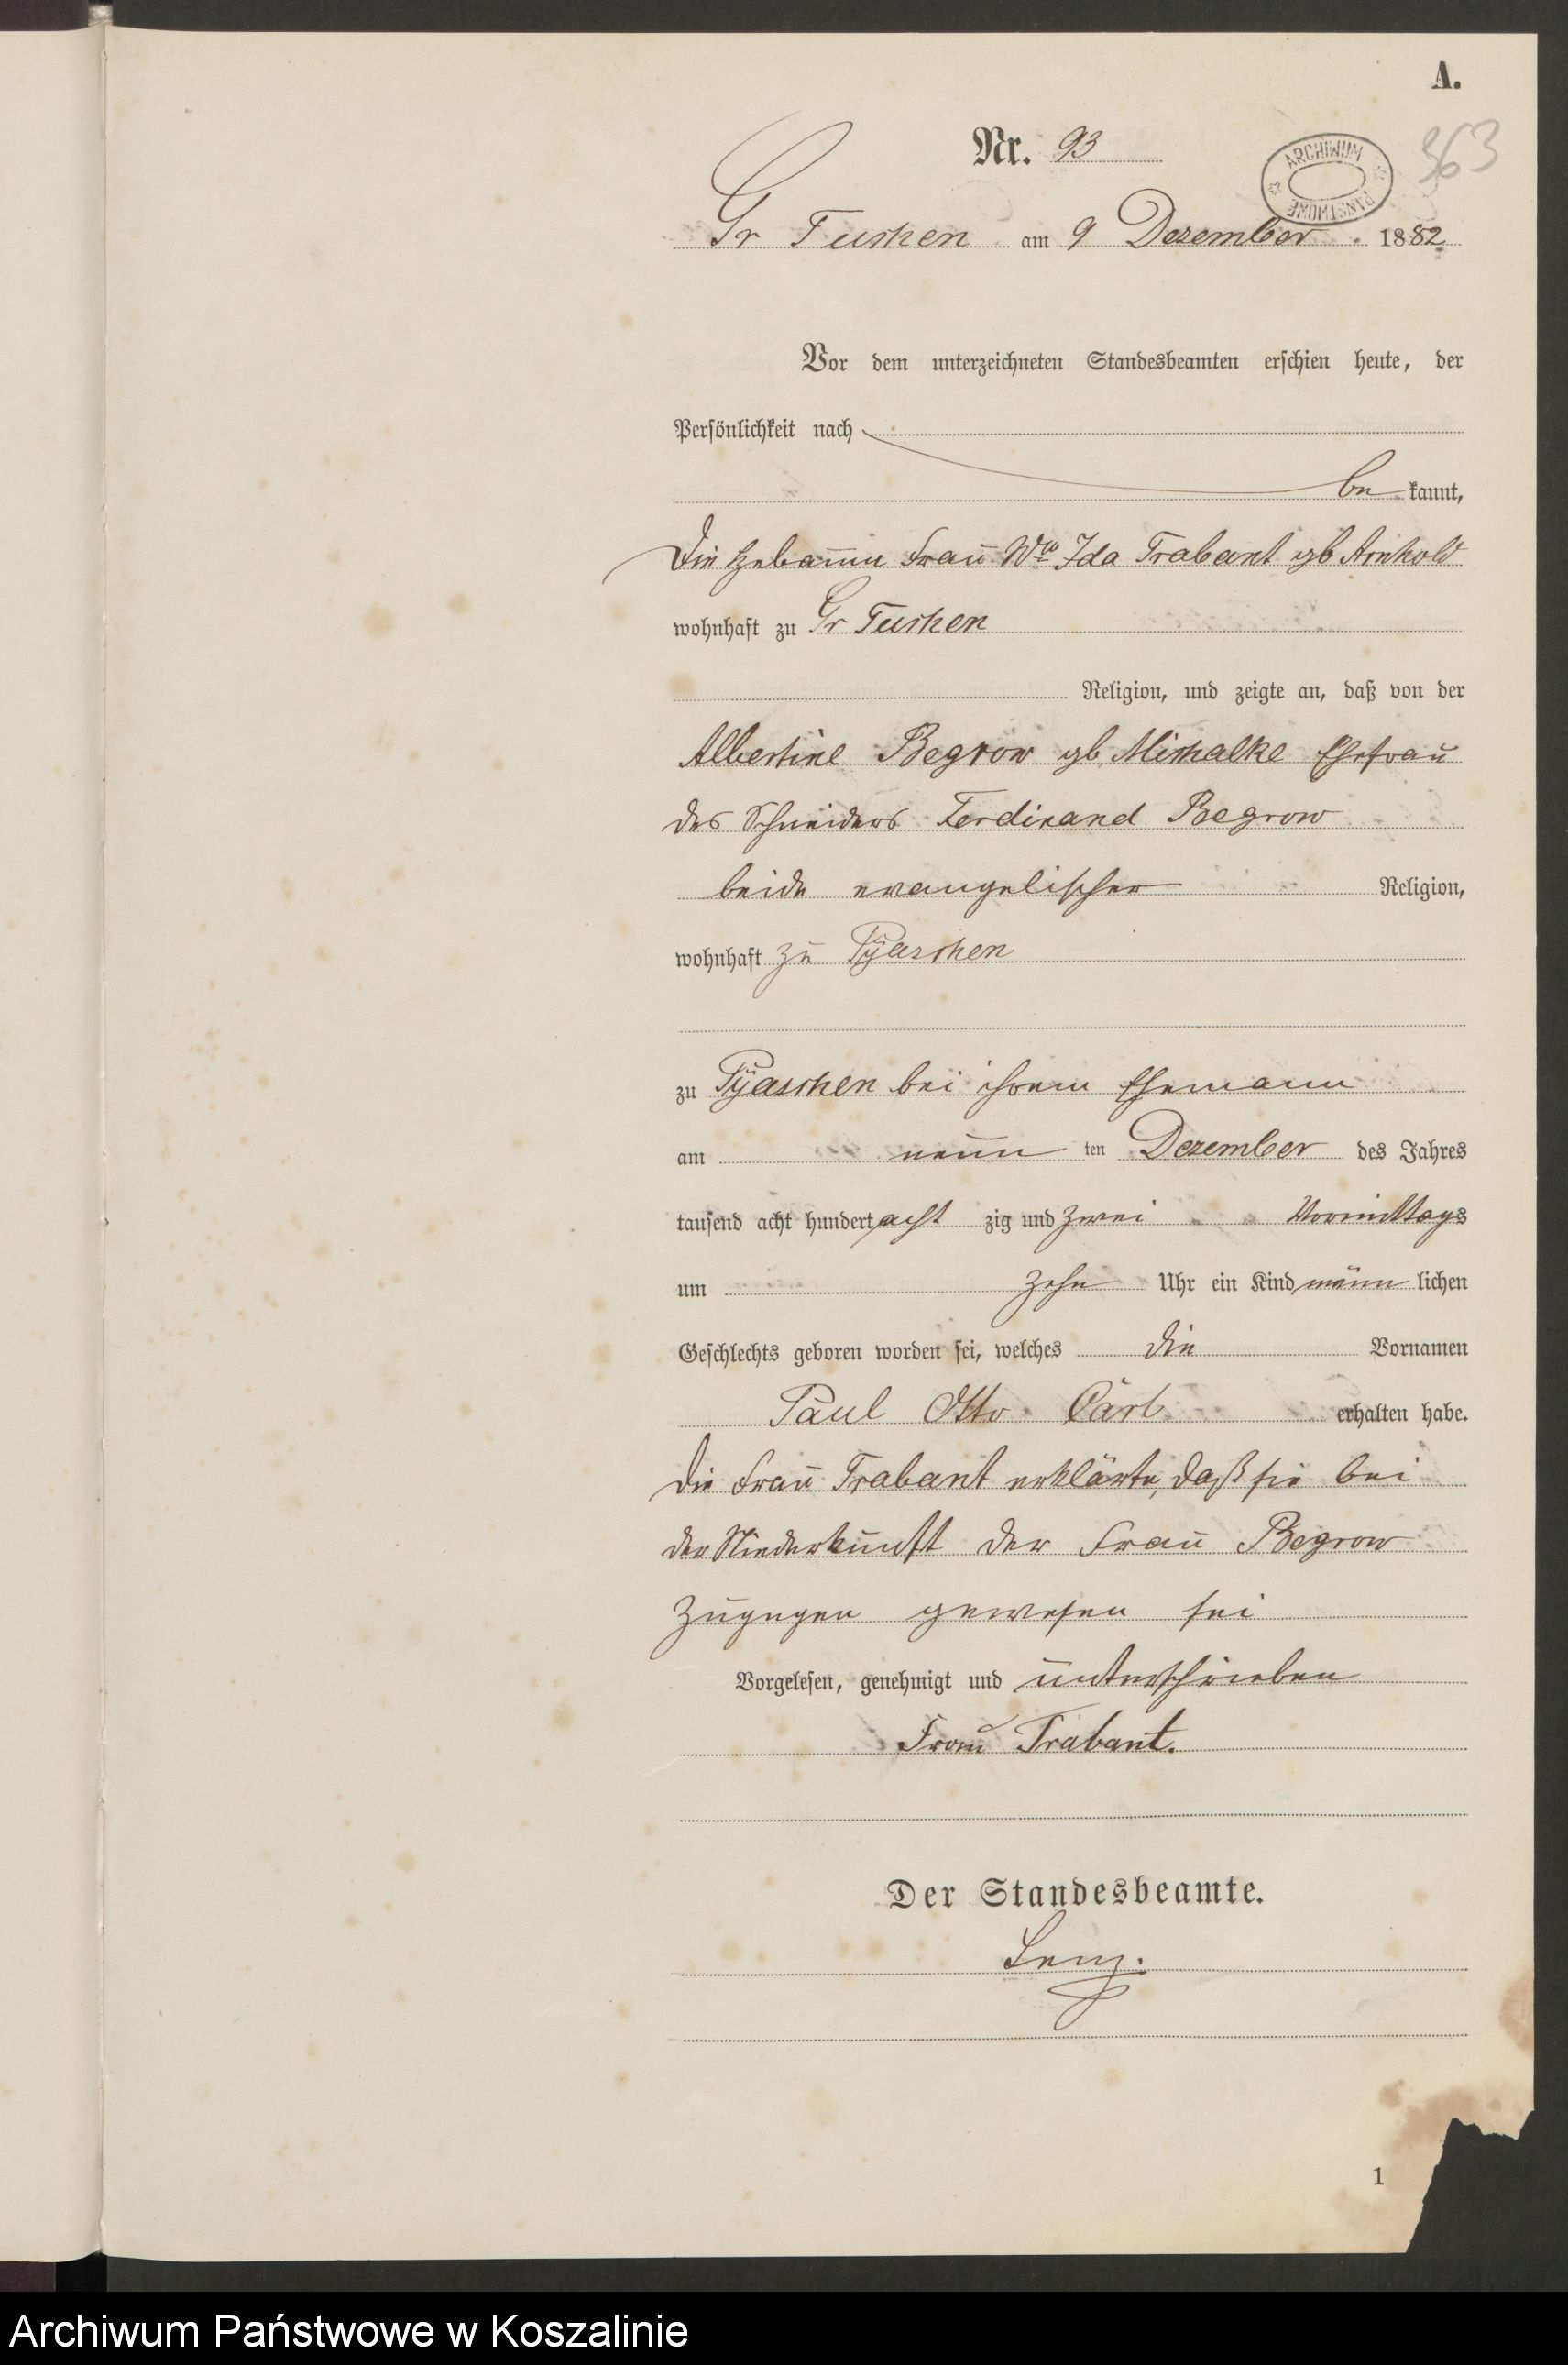 A.
Nr. 93
363
ARCHIWUM PAŃSTWOWE
Gr Tuchen am 9 Dezember 1882
Vor dem unterzeichneten Standesbeamten erschien heute, der
Persönlichkeit nach
be kannt,
Die Hebamme Frau Wwe Ida Trabant gb Arnhold
wohnhaft zu Gr Tuchen
Religion, und zeigte an, daß von der
Albertine Begrow gb Mischalke Ehefrau
des Schneiders Ferdinand Begrow
beide evangelischer Religion,
wohnhaft zu Pyaschen
zu Pyaschen bei ihrem Ehemann
am neun ten Dezember des Jahres
tausend acht hundert acht zig und zwei Vormittags
um zehn Uhr ein Kind männ lichen
Geschlechts geboren worden sei, welches die Vornamen
Paul Otto Carl erhalten habe.
Die Frau Trabant erklärte, daß sie bei
der Niederkunft der Frau Begrow
zugegen gewesen sei
Vorgelesen, genehmigt und unterschrieben
Frau Trabant.
Der Standesbeamte.
Lenz.
1
Archiwum Państwowe w Koszalinie